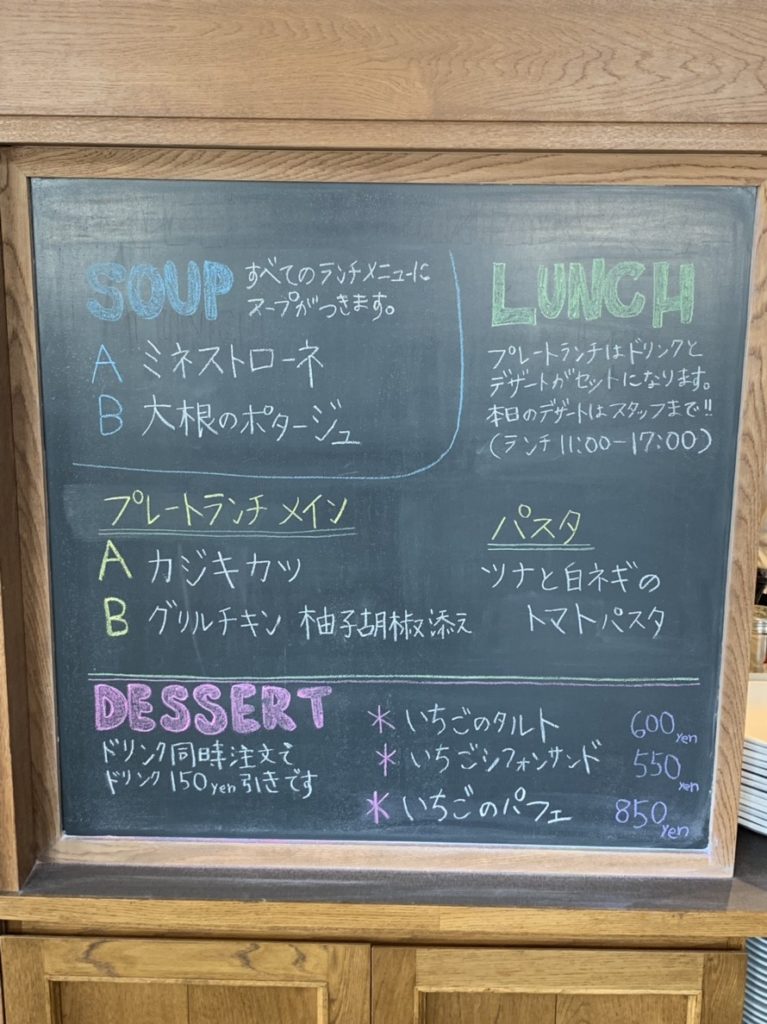 SOUP
すべてのランチメニューに
スープがつきます。
A ミネストローネ
B 大根のポタージュ
LUNCH
プレートランチはドリンクと
デザートがセットになります。
本日のデザートはスタッフまで!!
(ランチ 11:00-17:00)
プレートランチ メイン
A カジキカツ
B グリルチキン 柚子胡椒添え
パスタ
ツナと白ネギの
トマトパスタ
DESSERT
ドリンク同時注文で
ドリンク150yen引きです
* いちごのタルト 600yen
* いちごシフォンサンド 550yen
* いちごのパフェ 850yen